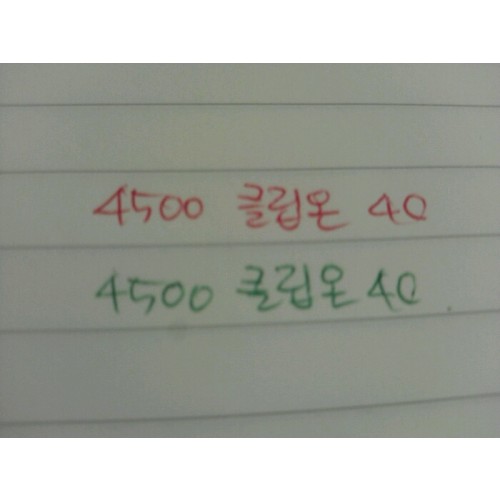 4500 클립온 40
4500 클립온 40